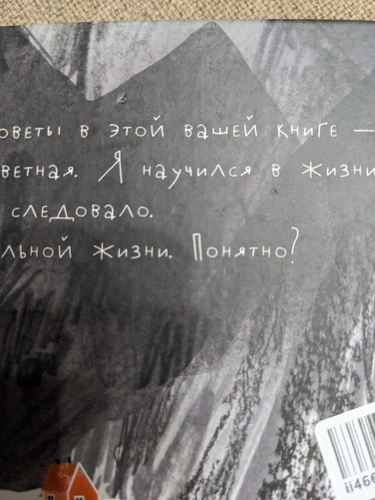 оветы в этой вашей книге —
ветная. Я научился в жизни
следовало.
льной жизни. Понятно?
ii466